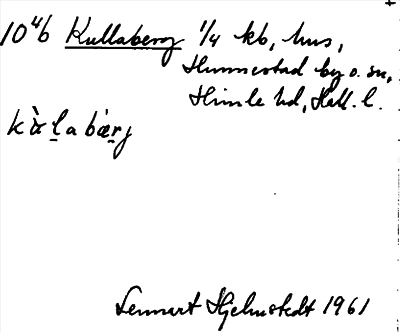 10⁴b Kullaberg 1/4 kb, hus,
Hunnestad by o. sn,
Himle hd, Hall. l.
Lennart Hjelmstedt 1961